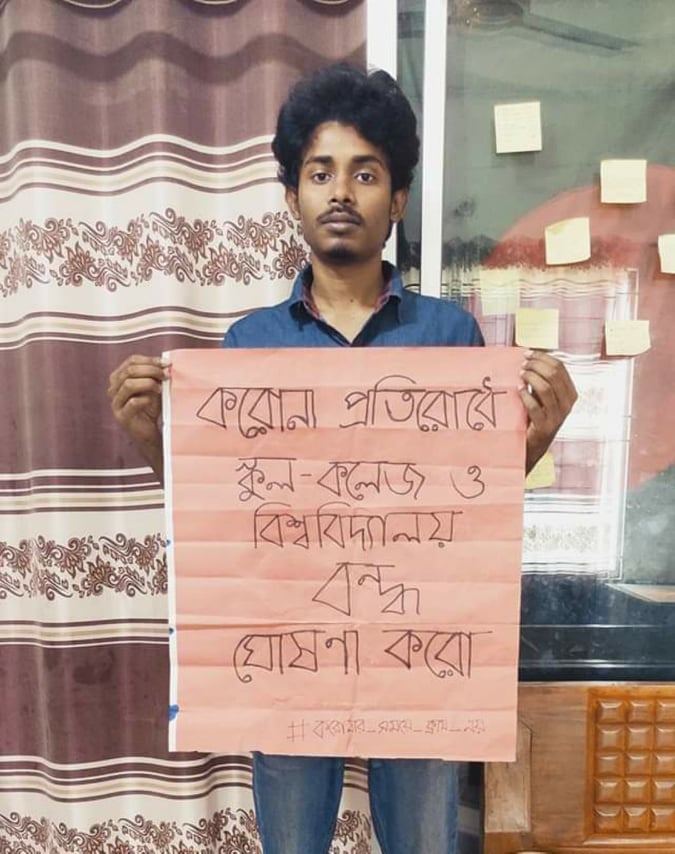 করোনা প্রতিরোধে
স্কুল-কলেজ ও
বিশ্ববিদ্যালয়
বন্ধ
ঘোষণা করো
#করোনার_সময়ে_ক্লাস_নয়